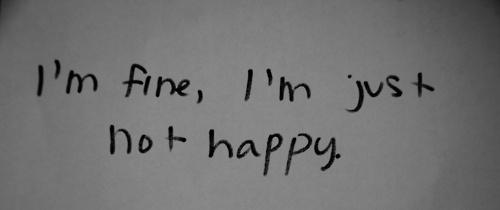 I'm fine, I'm just
not happy.